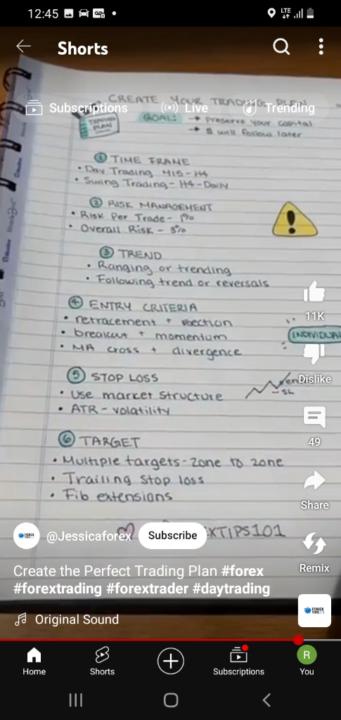 12:45
LTE
Shorts
CREATE YOUR TRADING PLAN
Subscriptions
Live
Trending
TRADING PLAN
GOAL: → Preserve your capital
→ $ will follow later
① TIME FRAME
• Day Trading M15-H4
• Swing Trading - H4-Daily
② RISK MANAGEMENT
• Risk Per Trade - 1%
• Overall Risk -
③ TREND
• Ranging or trending
• Following trend or reversals
④ ENTRY CRITERIA
• retracement + rejection
• breakout + momentum
• MA cross + divergence
11K
INDIVIDUA
Dislike
⑤ STOP LOSS
• Use market structure
• ATR - volatility
SL
49
⑥ TARGET
• Multiple targets - zone to zone
• Trailing Stop loss
• Fib extensions
Share
@Jessicaforex
Subscribe
XTIPS101
Remix
Create the Perfect Trading Plan #forex
#forextrading #forextrader #daytrading
Original Sound
Home
Shorts
Subscriptions
R
You